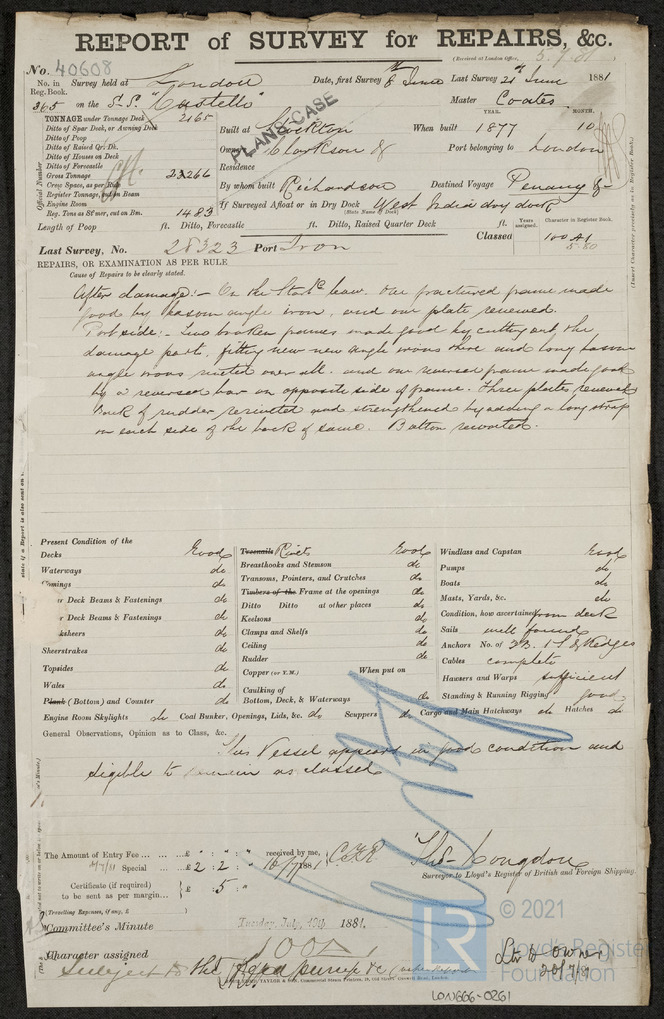 REPORT of SURVEY for REPAIRS, &c.
(Received at London Office, 5.7.81
No. 40608
No. in Reg. Book. Survey held at London Date, first Survey 8th June Last Survey 21st June 1881
365 on the S.S. "Castello" Master Coates
TONNAGE under Tonnage Deck 2165
YEAR. MONTH.
Ditto of Spar Deck, or Awning Deck
Built at Stockton When built 1877 10
PLANS CASE
Ditto of Poop
Ditto of Raised Qr. Dk.
Owners Clarkson & Port belonging to London
Ditto of Houses on Deck
Ditto of Forecastle
Residence
Gross Tonnage 2266
Crew Space, as per Rule
By whom built Richardson Destined Voyage Penang &
Register Tonnage, cut on Beam
Engine Room
If Surveyed Afloat or in Dry Dock West India dry dock
(State Name of Dock)
Reg. Tons as St'mer, cut on Bm. 1483
Official Number
Length of Poop ft. Ditto, Forecastle ft. Ditto, Raised Quarter Deck ft. Years assigned. Character in Register Book.
Last Survey, No. 28323 Port Iron Classed 100 A1
5.80
REPAIRS, OR EXAMINATION AS PER RULE
Cause of Repairs to be clearly stated.
After damage:- On the Starbd bow. One fractured frame made
good by bosom angle iron, and one plate renewed.
Port side:- Two broken frames made good by cutting out the
damage parts, fitting new angle irons there and long bosom
angle irons riveted over all. and one reverse frame made good
by a reverse bar on opposite side of frame. Three plates renewed
Back of rudder reriveted and strengthened by adding a long strap
on each side of the back of same. Bottom recoated.
Present Condition of the
Decks Good
Waterways do
Comings do
Deck Beams & Fastenings do
Deck Beams & Fastenings do
ksheers do
Sheerstrakes do
Topsides do
Wales do
Plank (Bottom) and Counter do
Treenails Rivets Good
Breasthooks and Stemson do
Transoms, Pointers, and Crutches do
Timbers of the Frame at the openings do
Ditto Ditto at other places do
Keelsons do
Clamps and Shelfs do
Ceiling do
Rudder do
Copper (or Y.M.) When put on
Caulking of Bottom, Deck, & Waterways do
Windlass and Capstan Good
Pumps do
Boats do
Masts, Yards, &c. do
Condition, how ascertained from deck
Sails well found
Anchors No. of 3B. 1S. & Kedges
Cables complete
Hawsers and Warps sufficient
Standing & Running Rigging good
Engine Room Skylights do Coal Bunker, Openings, Lids, &c. do Scuppers do Cargo and Main Hatchways do Hatches do
General Observations, Opinion as to Class, &c.
This Vessel appears in good condition and
eligible to remain as classed
The Amount of Entry Fee ... £ " : " : " received by me,
Special ... £ 2 : 2 : " 16/7/1881
Certificate (if required) to be sent as per margin £ : 5 : "
(Travelling Expenses, if any, £ )
Thos Congdon
Surveyor to Lloyd's Register of British and Foreign Shipping.
Committee's Minute Tuesday, July 19th 1881.
Character assigned 100A1
Subject to the Feed pump &c
Ltr to Owner
20/7/81
LON666-0261
© 2021
LR
Lloyd's Register
Foundation